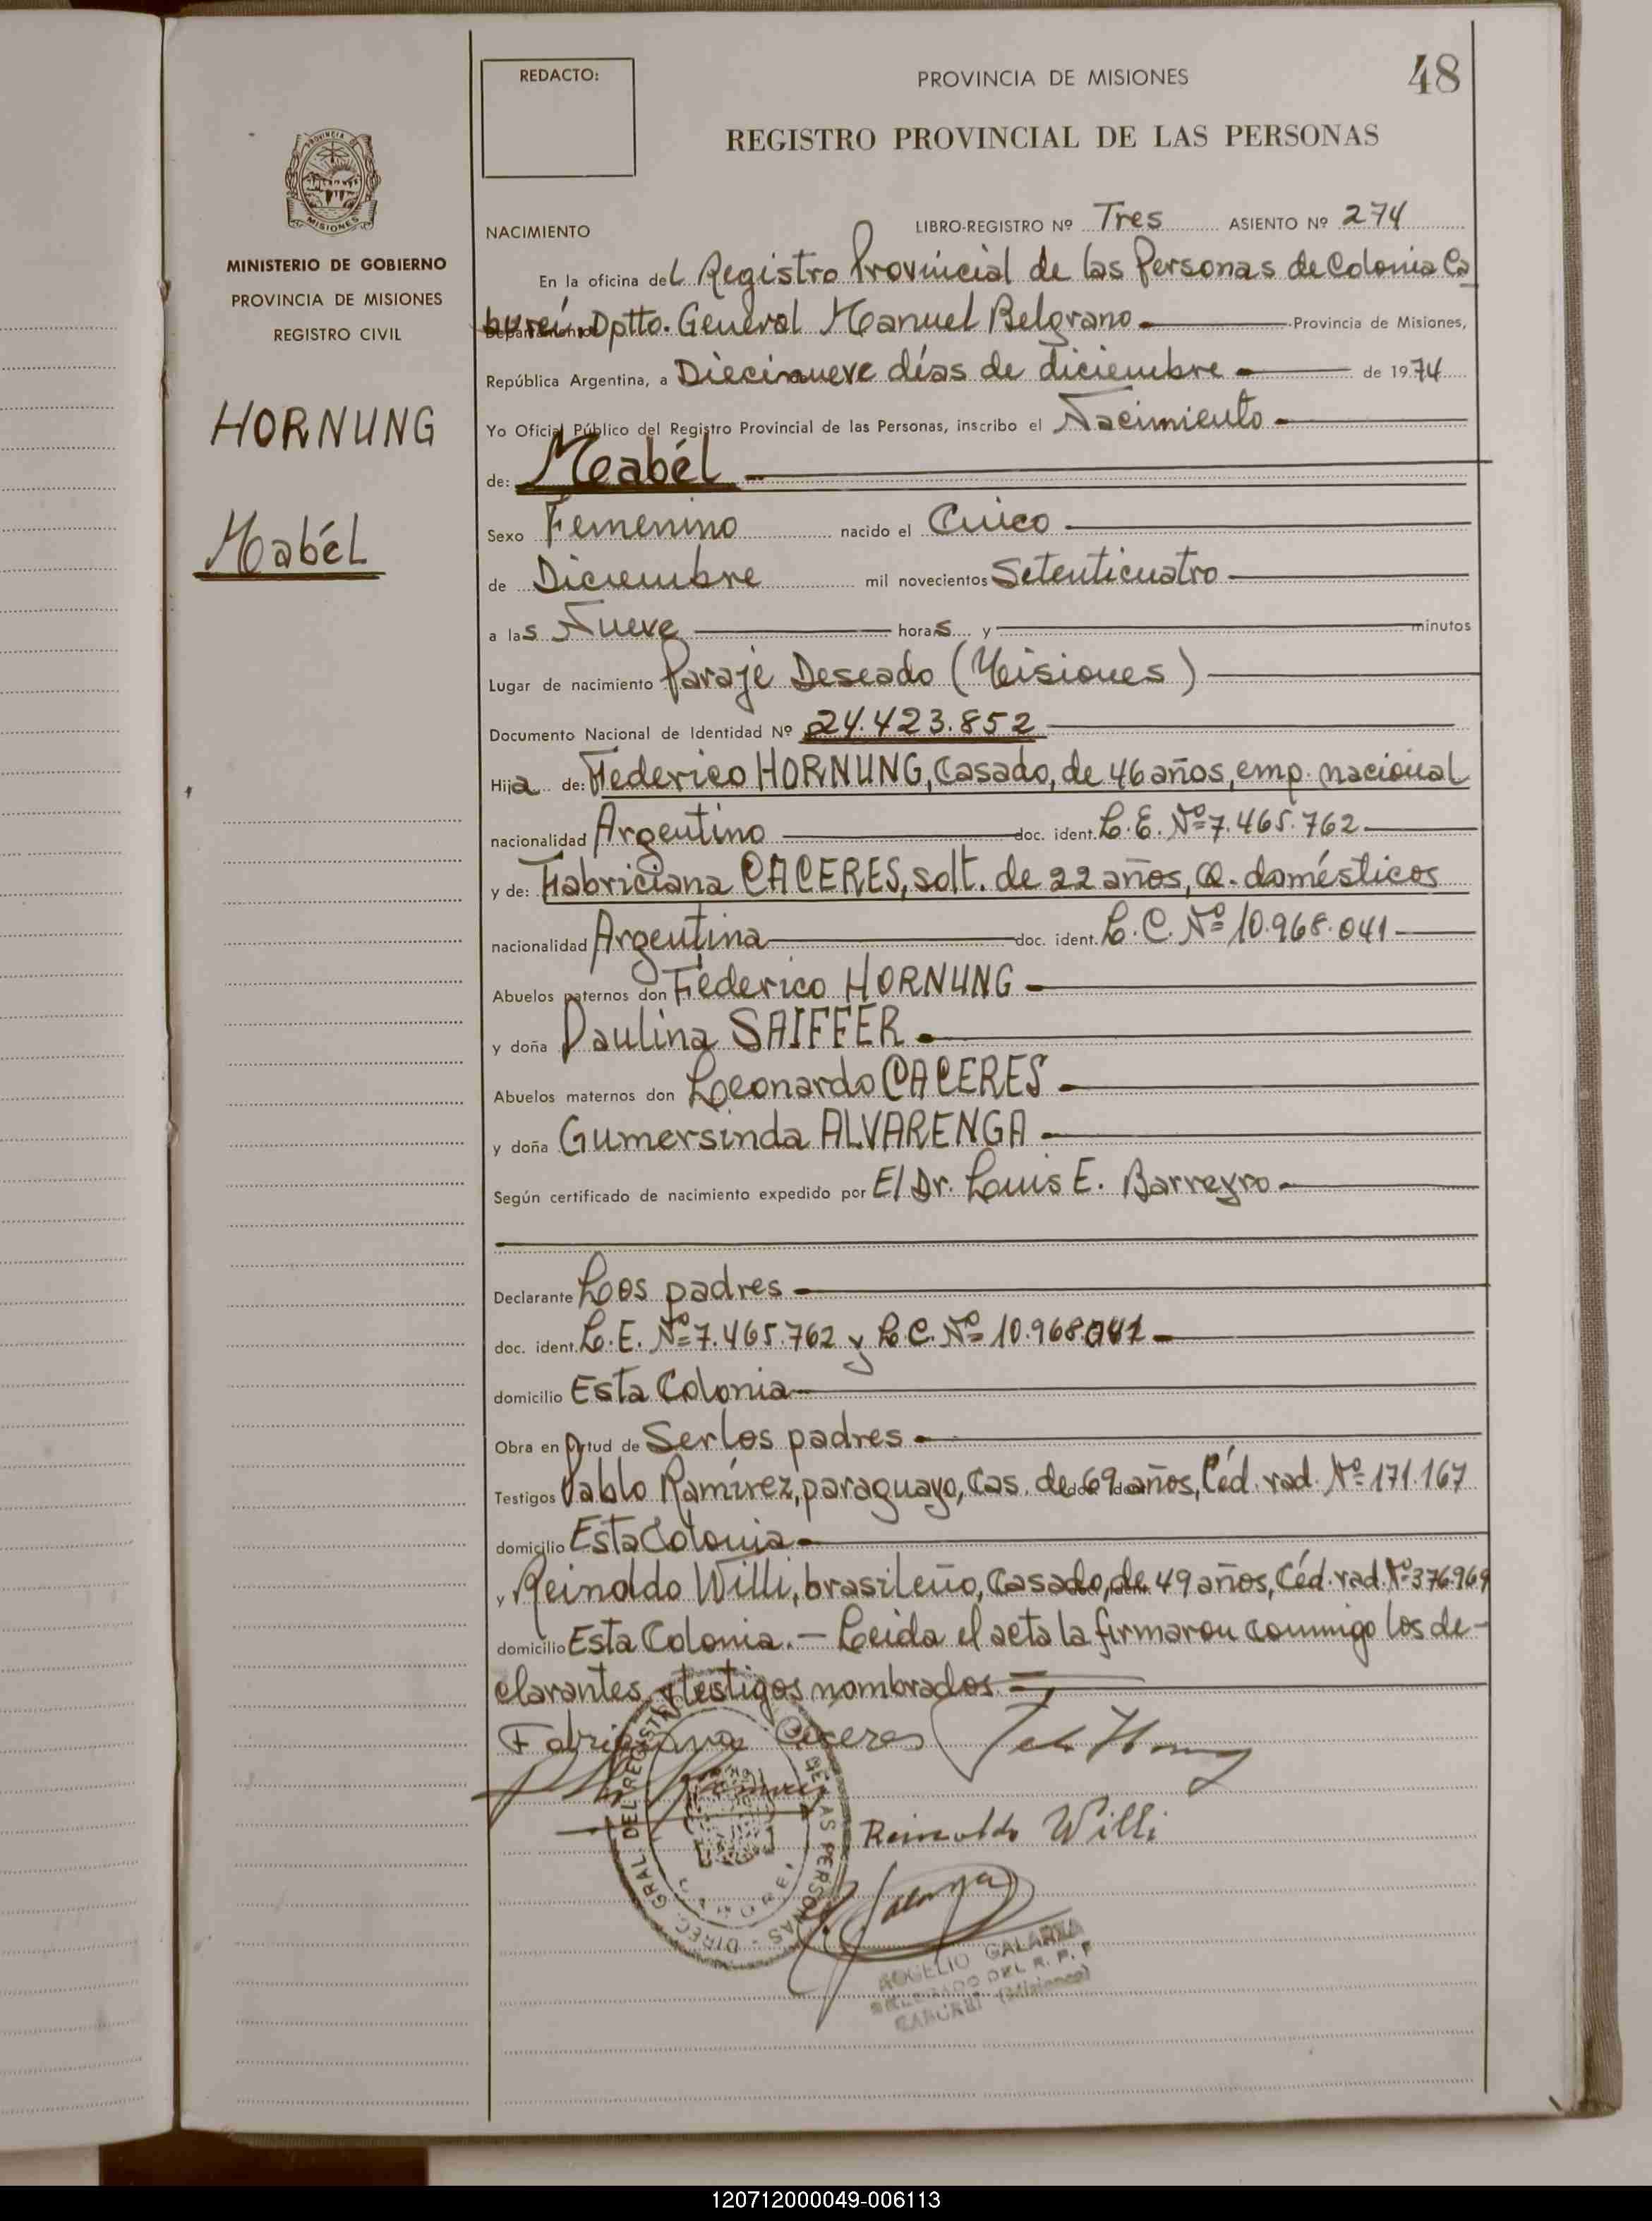 REDACTO:
PROVINCIA DE MISIONES
48
REGISTRO PROVINCIAL DE LAS PERSONAS
PROVINCIA
MISIONES
MINISTERIO DE GOBIERNO
PROVINCIA DE MISIONES
REGISTRO CIVIL
HORNUNG
Mabél
NACIMIENTO LIBRO-REGISTRO Nº Tres ASIENTO Nº 274
En la oficina del Registro Provincial de las Personas de Colonia Ca
burei Dptto. General Manuel Belgrano Provincia de Misiones,
República Argentina, a Diecinueve días de diciembre de 1974
Yo Oficial Público del Registro Provincial de las Personas, inscribo el Nacimiento
de: Mabél
Sexo Femenino nacido el Cinco
de Diciembre mil novecientos Setenticuatro
a las Nueve horas y minutos
Lugar de nacimiento Paraje Deseado (Misiones)
Documento Nacional de Identidad Nº 24.423.852
Hija de: Federico HORNUNG, casado, de 46 años, emp. nacional
nacionalidad Argentino doc. ident. L. E. Nº 7.465.762
y de: Fabriciana CACERES, solt. de 22 años, Q. domésticos
nacionalidad Argentina doc. ident. L. C. Nº 10.968.041
Abuelos paternos don Federico HORNUNG
y doña Paulina SAIFFER
Abuelos maternos don Leonardo CACERES
y doña Gumersinda ALVARENGA
Según certificado de nacimiento expedido por El Dr. Luis E. Barreyro
Declarante Los padres
doc. ident. L. E. Nº 7.465.762 y L. C. Nº 10.968.041
domicilio Esta Colonia
Obra en virtud de Ser los padres
Testigos Pablo Ramírez, paraguayo, cas. de 69 años, Céd. rad. Nº 171.167
domicilio Esta Colonia
y Reinoldo Willi, brasileño, casado, de 49 años, Céd. rad. Nº 376.969
domicilio Esta Colonia.- Leida el acta la firmaron conmigo los de-
clarantes y testigos nombrados
Fabriciana Caceres
Reinoldo Willi
DIREC. GRAL. DEL REGISTRO DE LAS PERSONAS
ROGELIO GALARZA
DELEGADO DEL R. P. P
CABUREI (Misiones)
120712000049-006113